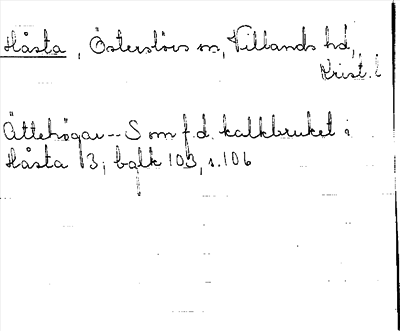 Håsta, Österslövs sn, Villands hd,
Krist. l
Ättehögar -- S om f.d. kalkbruket i
Håsta 13; bglk 103, s. 106